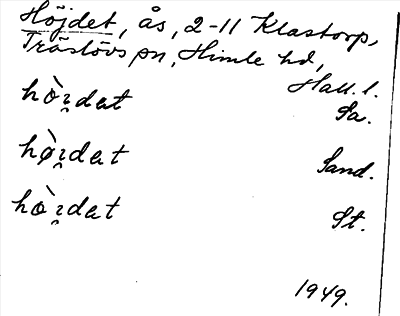 Höjdet, ås, 2-11 Klastorp,
Träslövs sn, Himle hd,
Hall. l.
hò̤ꝛdat Sa.
hø̀ꝛdat Sand.
hò̤ꝛdat St.
1949.